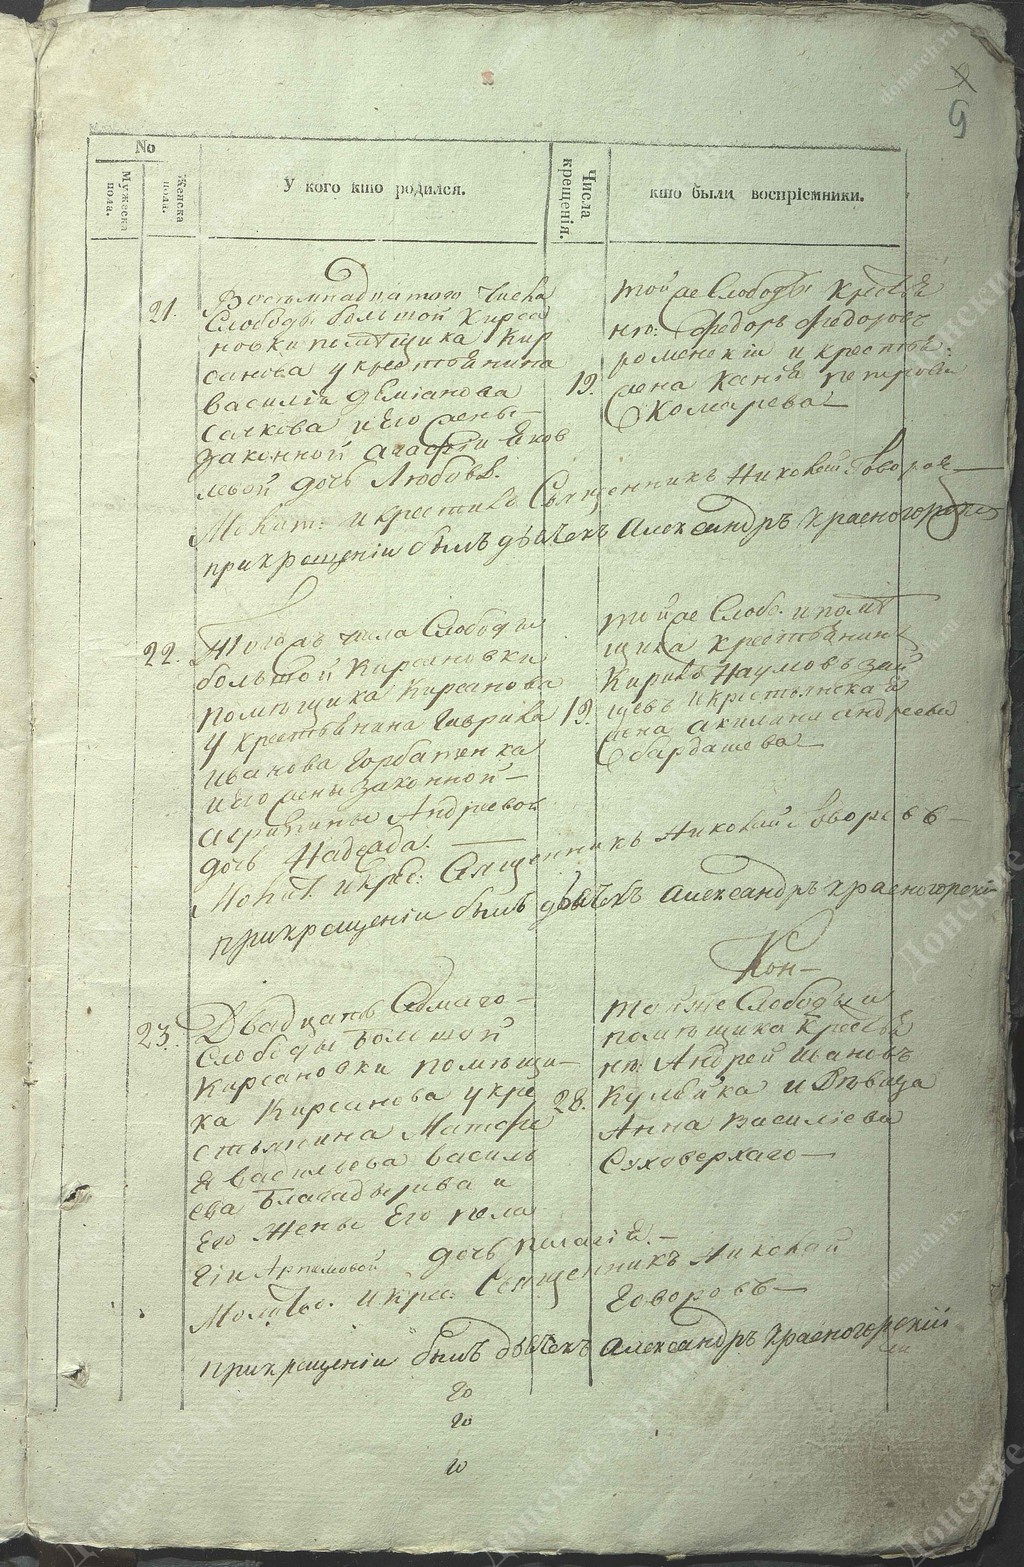 9
No
Мужеска пола.
Женска пола.
У кого кто родился.
Числа крещенія.
кто были воспріемники.
21.
Восемнадцатого числа
Слободы большой Кирса
новки помѣщика Кир
санова у крестьянина
василія деміанова
и его жены
законной агафіи Яков
левой дочь Любовь.
19.
тойже Слободы крестья
нп: Федоръ Федоровъ
роменскіи и крестья:
жена Ксенія петрова
Скомарева
Молит: и крестилъ Священникъ Николай Говоровъ
при крещеніи былъ дьячекъ Александръ Красногорскій
22.
Тогожъ числа Слободы
большой Кирсановки
помѣщика Кирсанова
у крестьянина Гаврила
иванова Горбатенка
и его жены законной
агрипины Андреевой
дочь Надежда.
19.
тойже Слобо. и помѣ
щика крестьянинъ
Кирилъ Наумовъ зай
цевъ и крестьянская
жена акилина андреева
бардашева
Молит. и крес: Священникъ Николай Говоровъ
при крещеніи былъ дьячекъ Александръ Красногорскій
23.
Двадцать Седмаго
Слободы большой
Кирсановки помѣщи
ка Кирсанова у кре
стьянина Матфе
я василь
ева и
Его Жены Его пела
гіи Артемовой дочь пелагія.
28.
Кон
тойже Слободы и
помѣщика крестья
нп: Андрей ивановъ
Кулбика и дѣвица
Анна василіева
Суховерхаго
Молитво. и крес: Священникъ Николай
Говоровъ
при крещеніи былъ дьячекъ Александръ Красногорскій